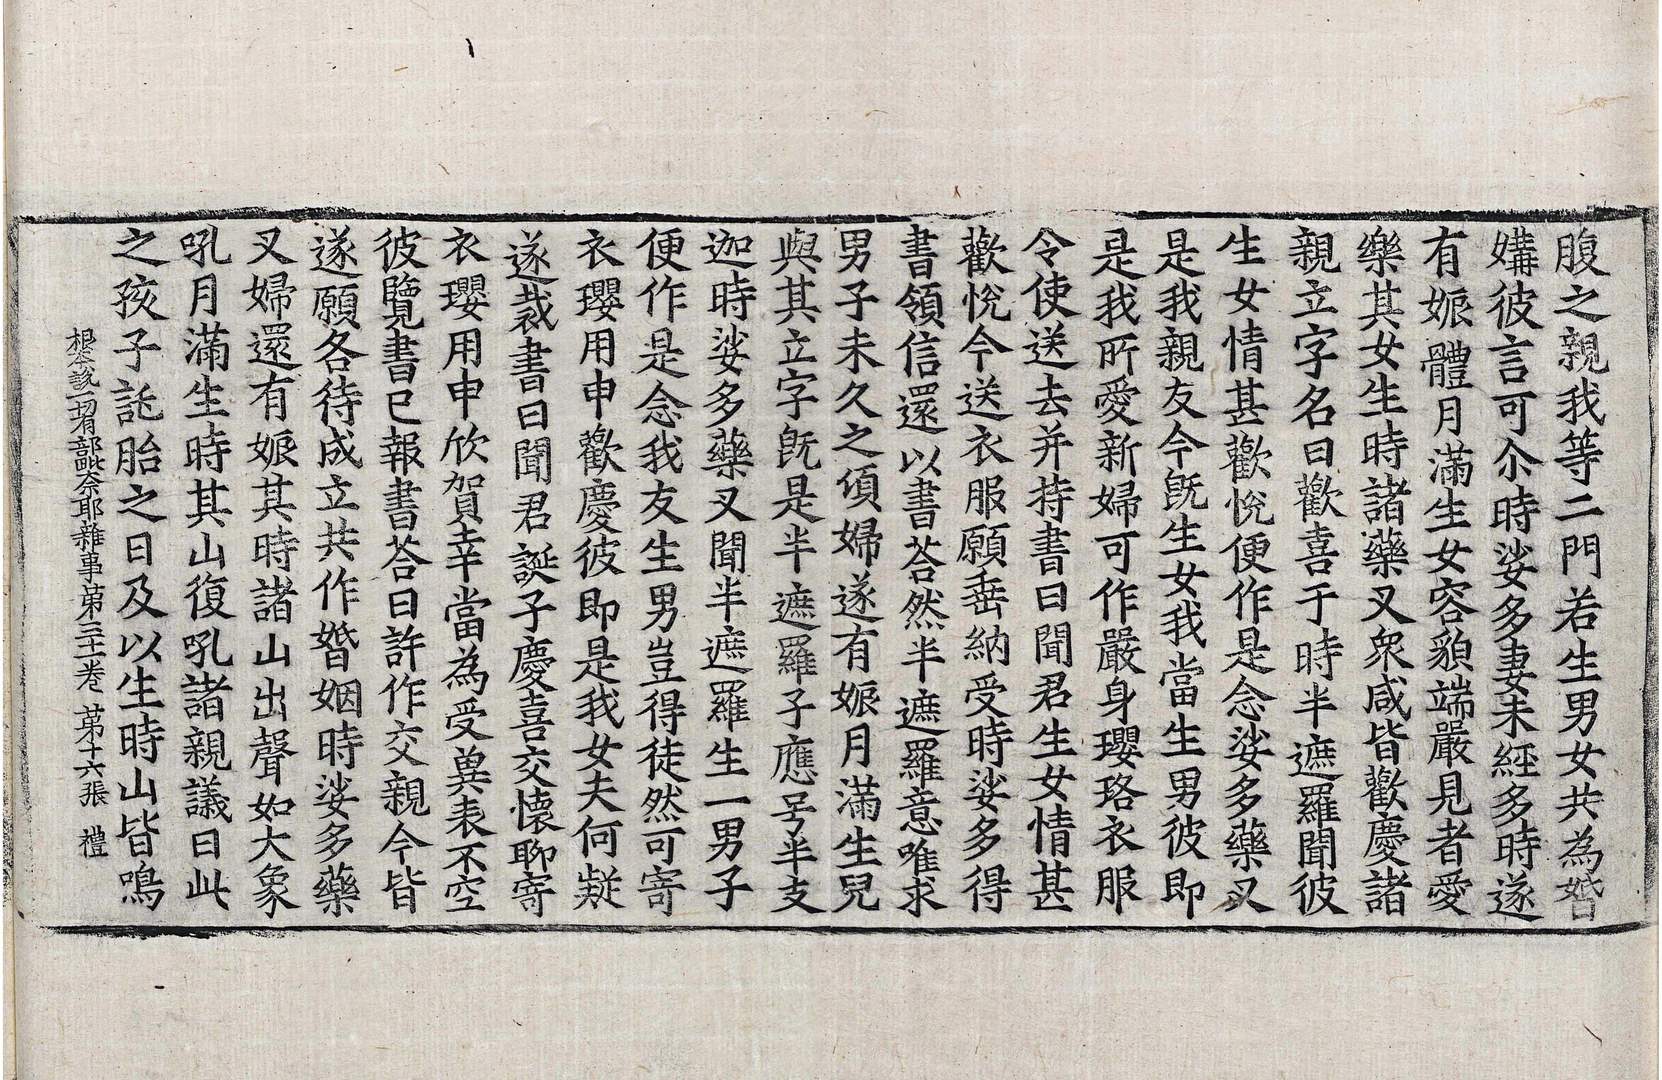 腹之親我等二門若生男女共為婚
媾彼言可尒時娑多妻未經多時遂
有娠體月滿生女容貌端嚴見者愛
樂其女生時諸藥叉衆咸皆歡慶諸
親立字名曰歡喜于時半遮羅聞彼
生女情甚歡悅便作是念娑多藥叉
是我親友今旣生女我當生男彼即
是我所愛新婦可作嚴身瓔珞衣服
令使送去并持書曰聞君生女情甚
歡悅今送衣服願垂納受時娑多得
書領信還以書荅然半遮羅意唯求
男子未久之頃婦遂有娠月滿生兒
與其立字旣是半遮羅子應号半支
迦時娑多藥叉聞半遮羅生一男子
便作是念我友生男豈得徒然可寄
衣瓔用申歡慶彼即是我女夫何疑
遂裁書曰聞君誕子慶喜交懷聊寄
衣瓔用申欣賀幸當為受兾表不空
彼覽書已報書荅曰許作交親今皆
遂願各待成立共作婚姻時娑多藥
叉婦還有娠其時諸山出聲如大象
吼月滿生時其山復吼諸親議曰此
之孩子託胎之日及以生時山皆鳴
根本說一切有部毗奈耶雜事第三十一卷 第十六張 禮